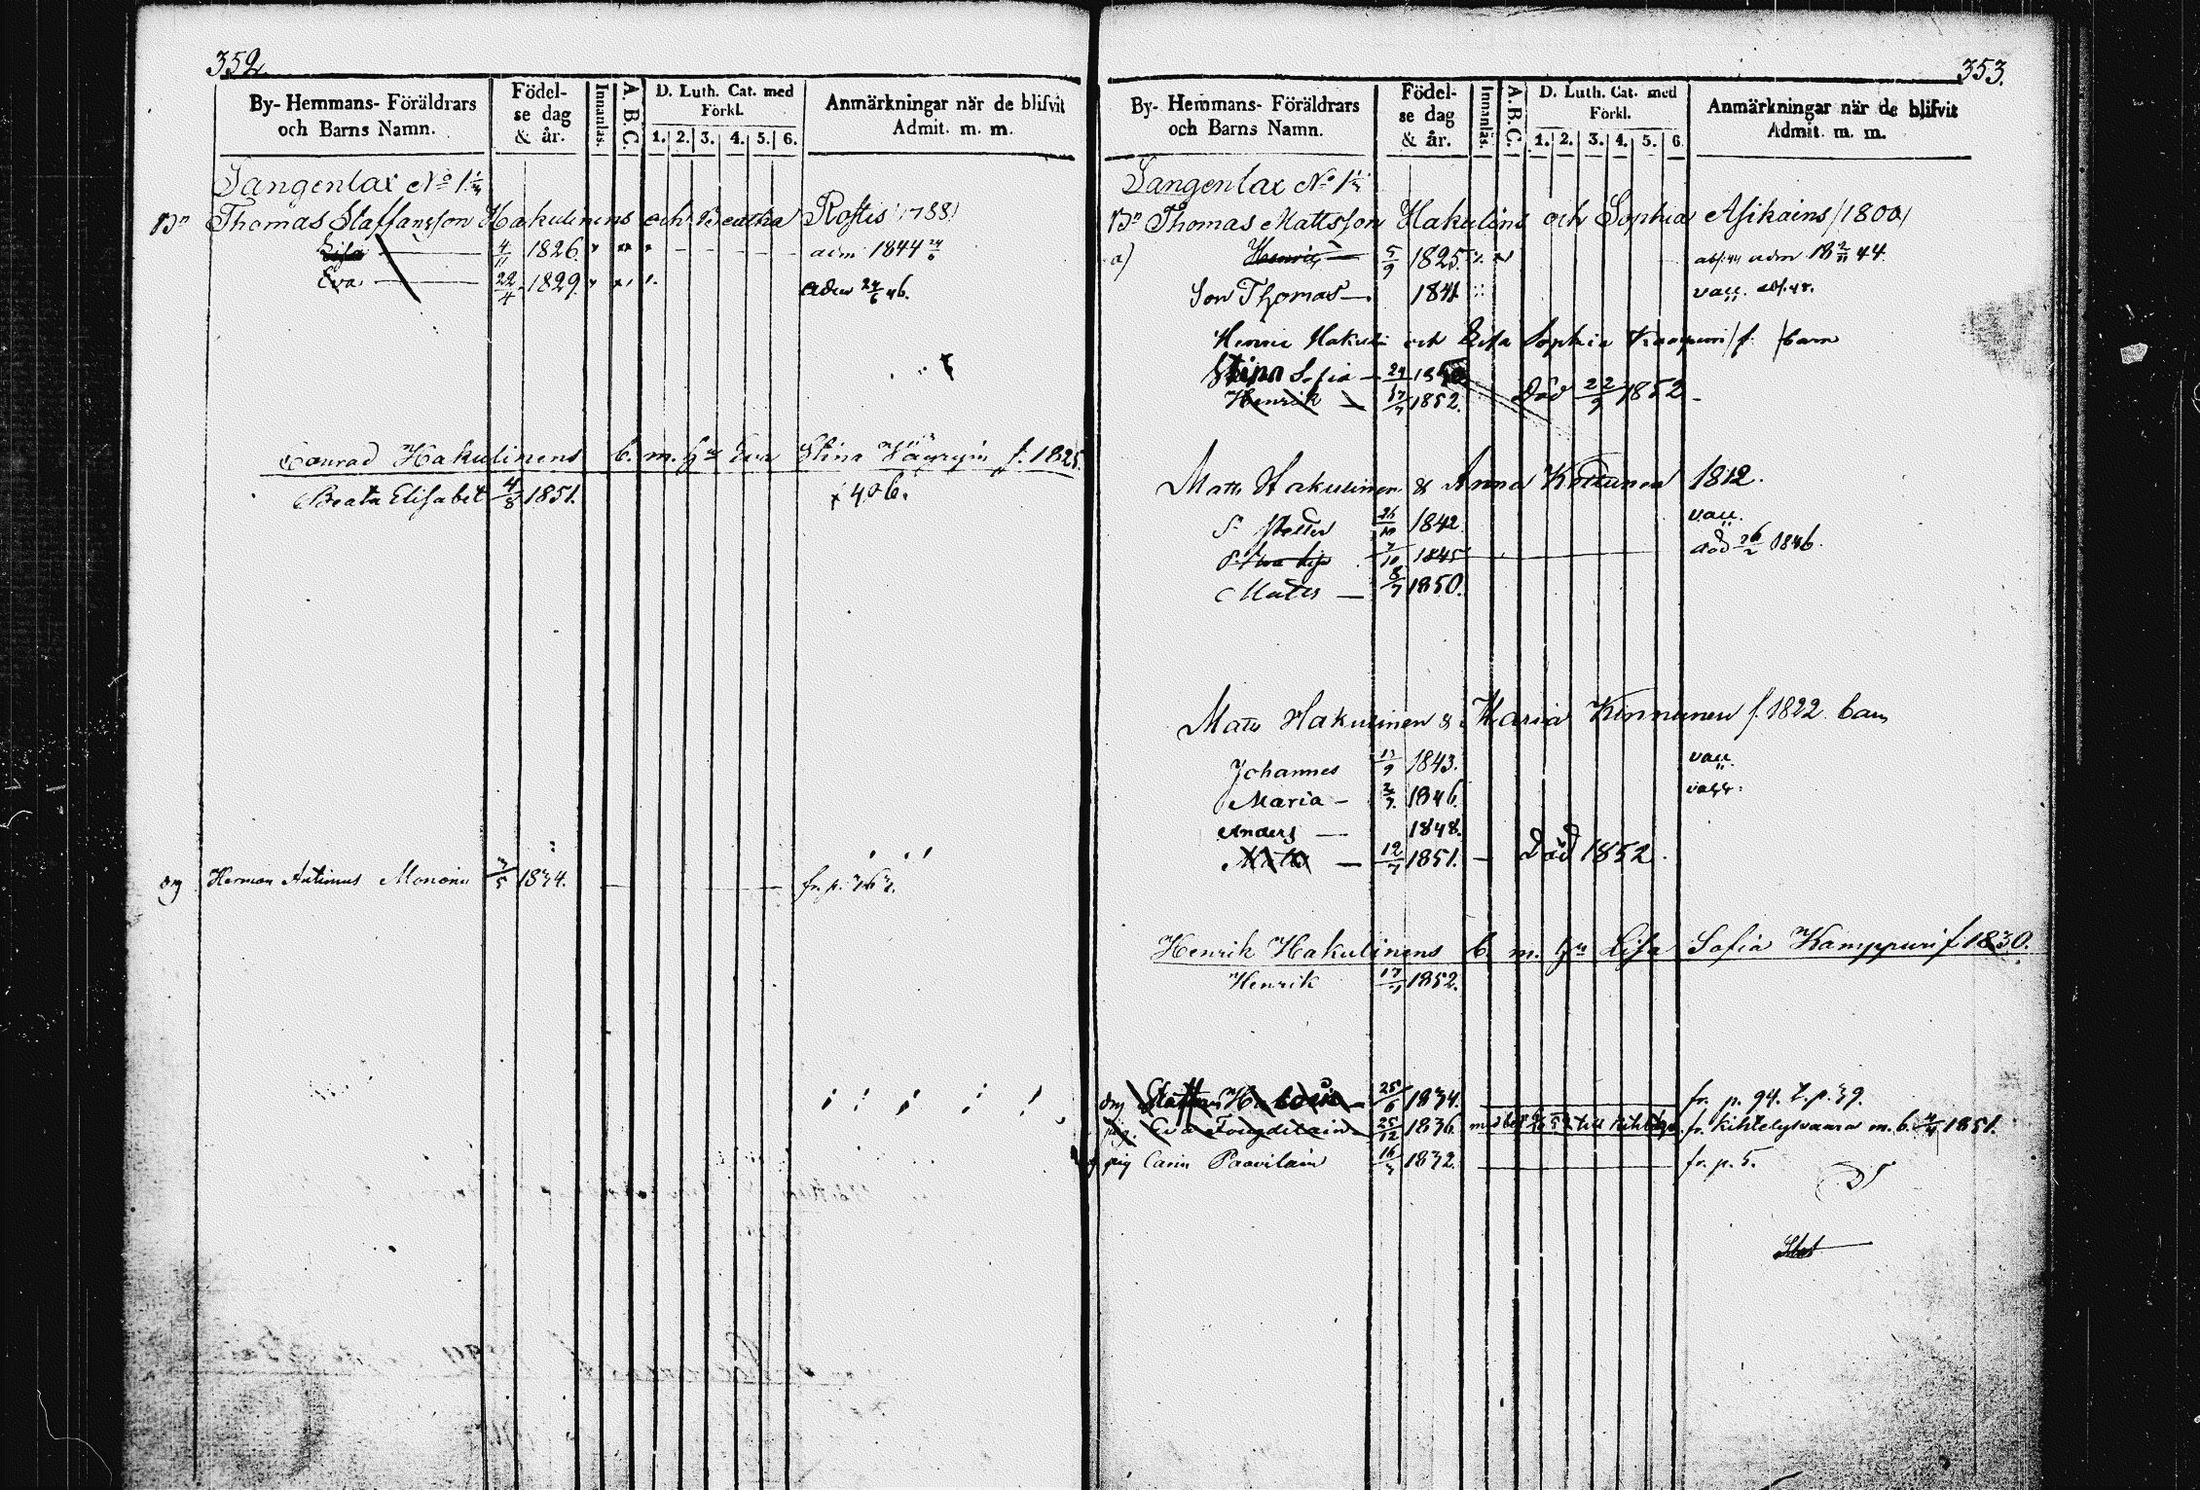 352.
By- Hemmans- Föräldrars och Barns Namn.
Födel- se dag & år.
Innanläs.
A. B. C.
D. Luth. Cat. med Förkl.
1. 2. 3. 4. 5. 6.
Anmärkningar när de blifvit Admit. m. m.
Sangenlax No 1.
Bn Thomas Staffansson Hakulinens och Beatha Rostis /1788/
Lisa 4/11 1826. adm 1844
Eva 22/4 1829. adm 24/6 46.
Conrad Hakulinens b. m. hu Eva Stina Väyryin f. 1825.
Beata Elisabet 4/8 1851. x 406.
drg Herman Antinus Monoin 3/5 1834. fr. p. 363.
353.
By- Hemmans- Föräldrars och Barns Namn.
Födel- se dag & år.
Innanläs.
A. B. C.
D. Luth. Cat. med Förkl.
1. 2. 3. 4. 5. 6.
Anmärkningar när de blifvit Admit. m. m.
Sangenlax No 1
Bn Thomas Mattsson Hakulins och Sophia Asikains /1800/
a) Henric 5/9 1825. adm 18 44.
Son Thomas 1841 vacc.
Henric Hakuli och Lisa Sophia Kampuri /f. / barn
Stina Sofia 24
Henrik 17/7 1852. Död 22/9 1852
Matts Hakulinen & Anna Kottunen 1812.
S. Petter 26/10 1842. vacc.
7/10 1845 död 26/2 1846.
Matts 8/7 1850.
Matts Hakulinen & Maria Kinnunen f. 1822. barn
Johannes 17/9 1843. vacc.
Maria 2/7. 1846. vacc.
Anders 1848.
Matts 12/7 1851. Död 1852.
Henrik Hakulinens b. m. hu Lisa Sofia Kamppuri f. 1830.
Henrik 17/7 1852.
drg Staffan 25/6 1834. fr. p. 94. t. p. 39.
pig. Eva 25/12 1836. fr. Kihtelysvaara m. b. 1851.
pig Carin Paavilain 16/3 1832. fr. p. 5.